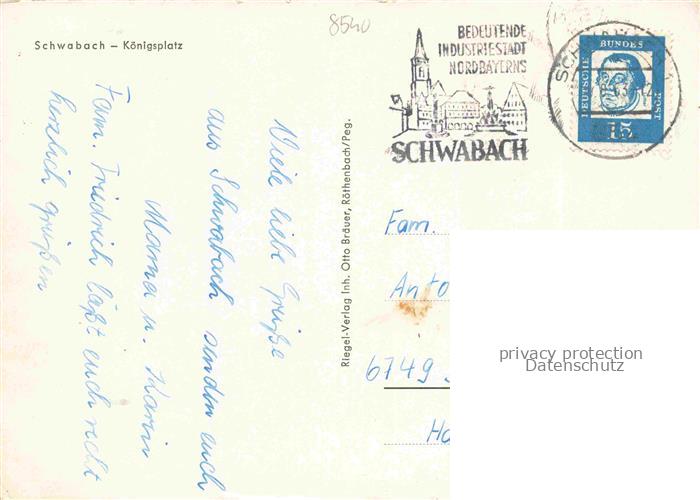 8540
Schwabach – Königsplatz
BEDEUTENDE
INDUSTRIESTADT
NORDBAYERNS
SCHWABACH
DEUTSCHE BUNDES POST
15
Viele liebe Grüße
aus Schwabach senden euch
Mama u. Karin
Fam. Friedrich läßt euch recht
herzlich grüßen
Riegel-Verlag Inh. Otto Bräuer, Röthenbach/Peg.
Fam.
Anto
6749
Ha
privacy protection
Datenschutz